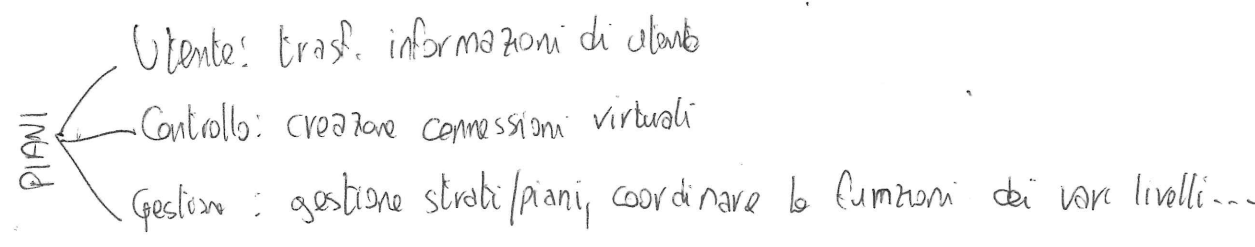 PIANI
Utente: trasf. informazioni di utente
Controllo: creazione connessioni virtuali
Gestione: gestione strati/piani, coordinare le funzioni dei vari livelli...